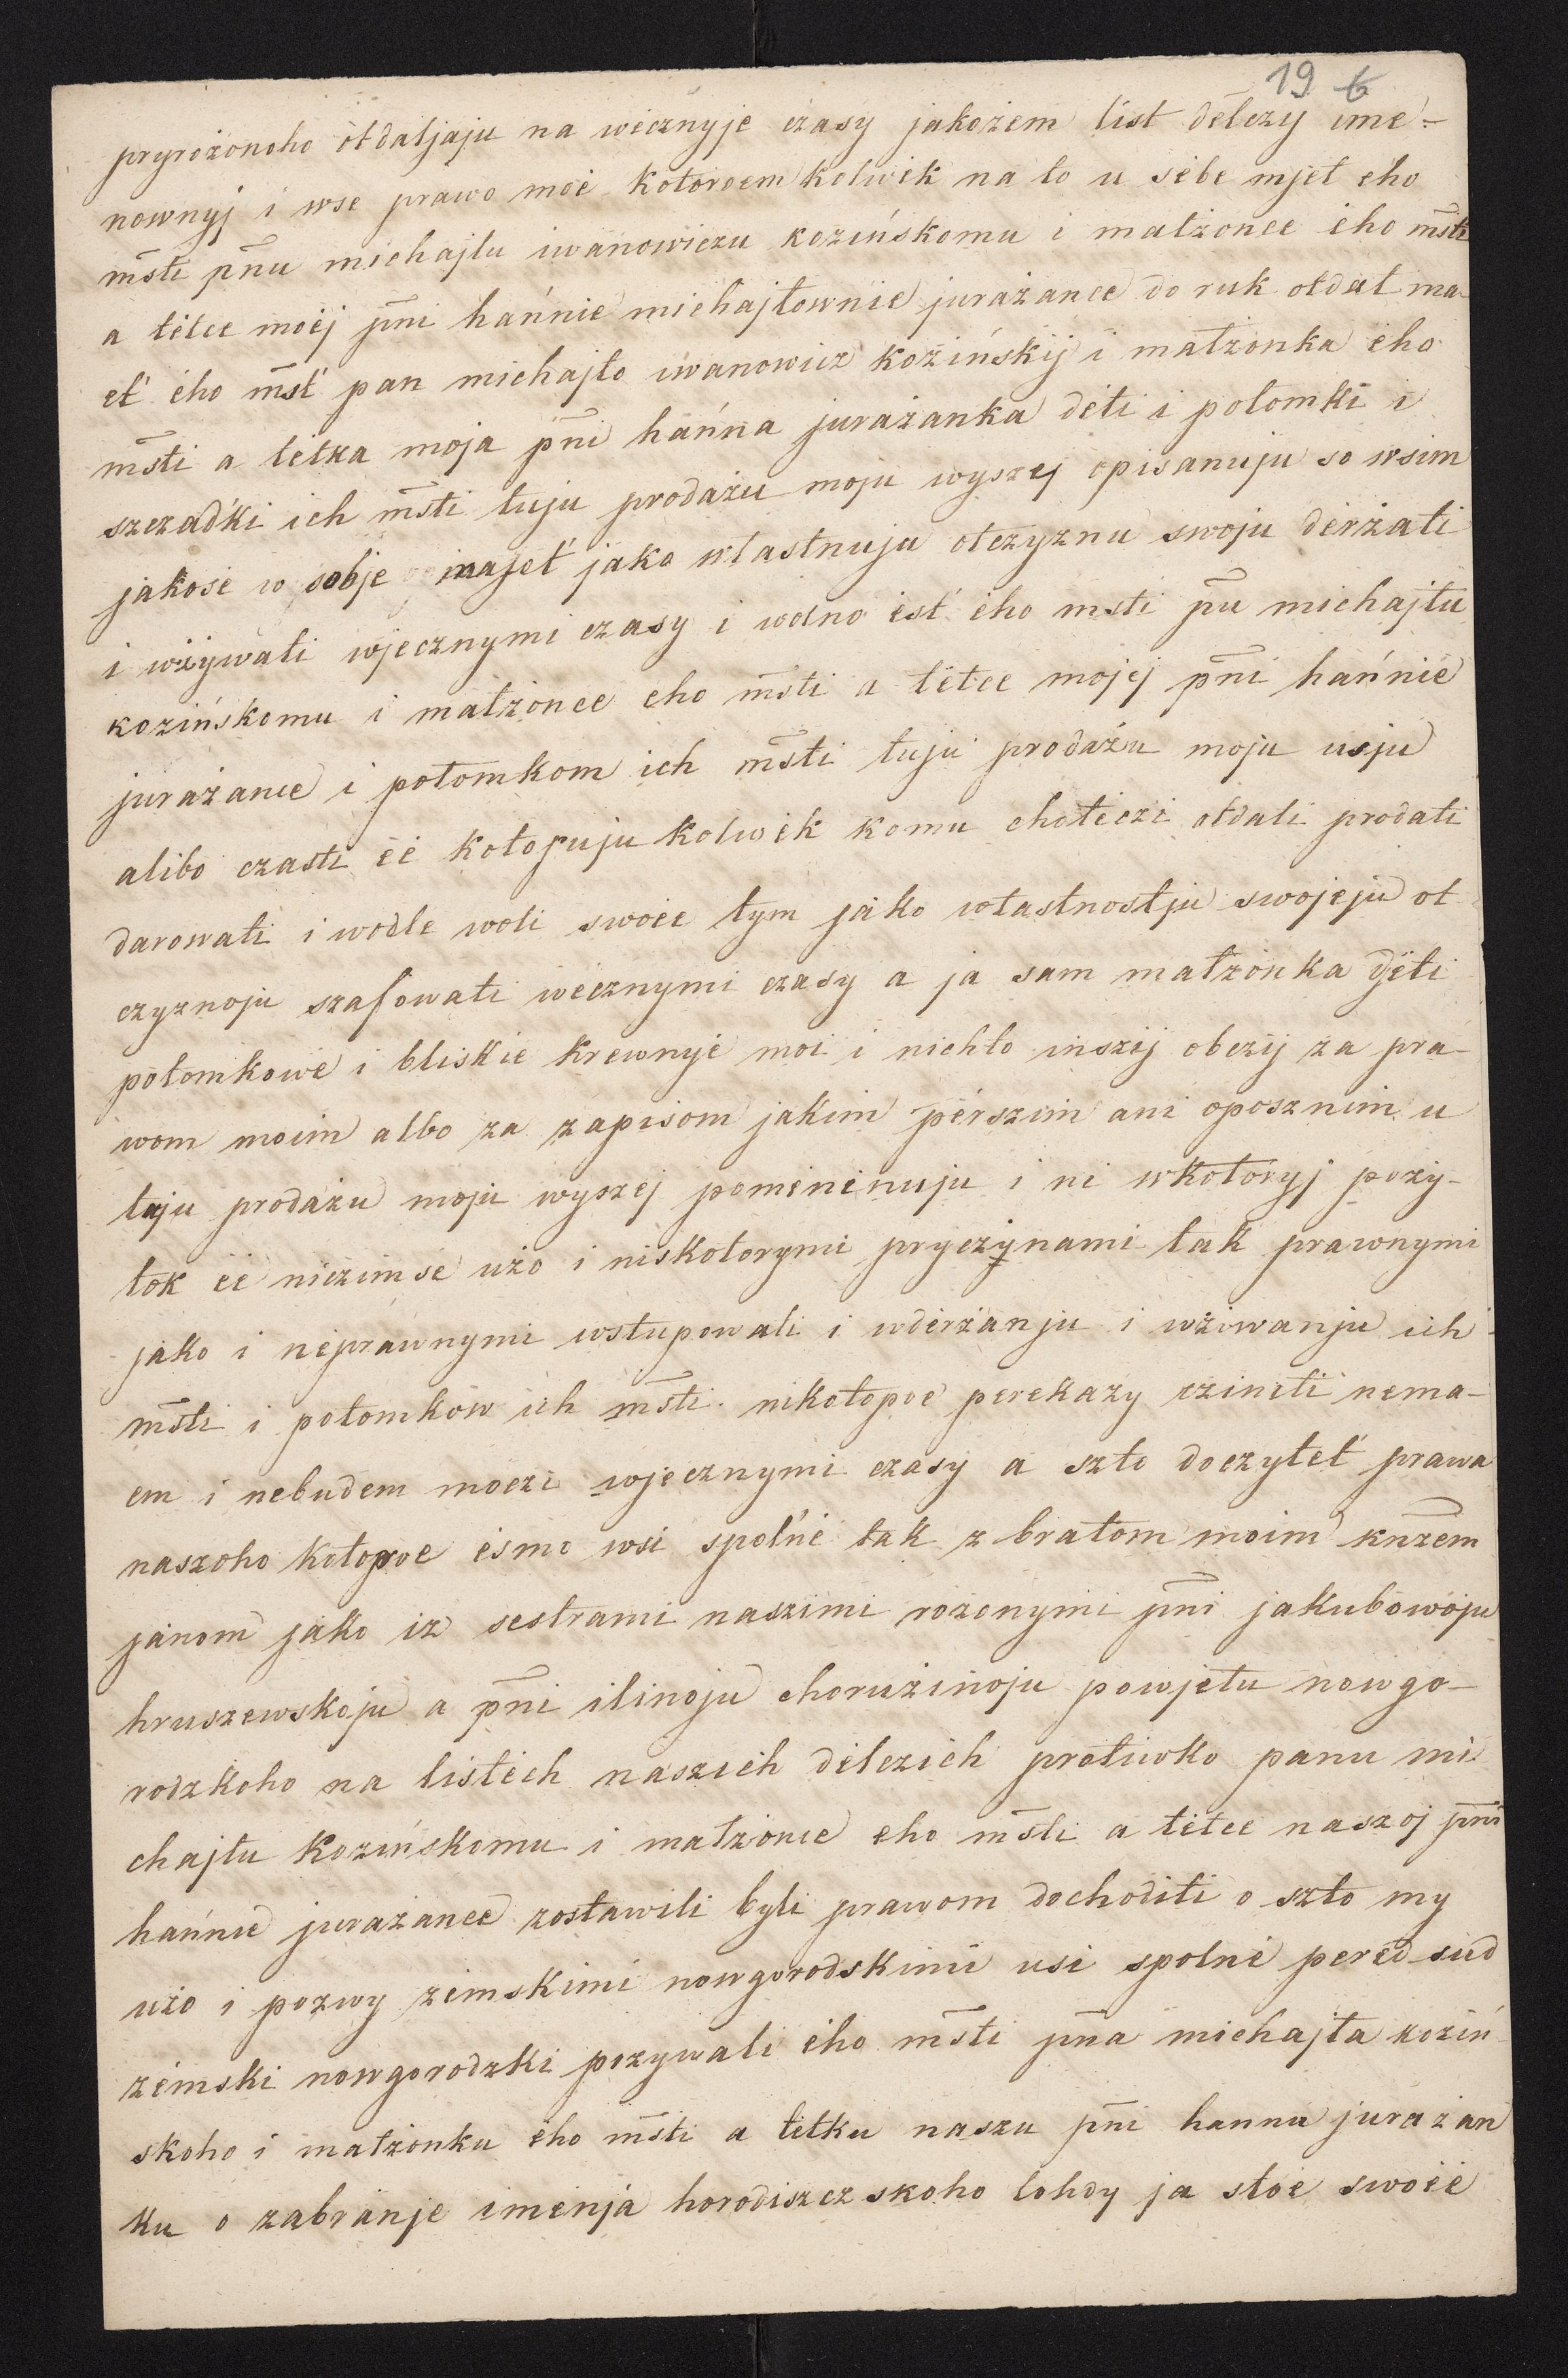 19 6
pryrożonoho otdaljaju na wiecznyje czasy jakożem list dèlczy ime-
nownyj i wse prawo moè kotoroem kolwèk na to u sèbe mjeł eho
m̅sti p̅nu michajłu iwanowiczu kozińskomu i małżonce èho m̅sti
a tètce moèj p̅ni hańniè michajłowniè jurażance do ruk otdał ma-
èt' èho m̅st' pan michajło iwanowicz kozińskij i małżonka èho
m̅sti a tètka moja p̅ni hańna jurażanka dèti i potomki i
szczadki ich m̅sti tuju prodażu moju wyszej opisanuju so wsim
jakosè w sobje majet' jako włastnuju otczyznu swoju dèrżati
i wżywati wjecznymi czasy i wolno èst' èho msti p̅u michajłu
kozińskomu i małżonce eho m̅sti a tètce mojèj p̅ni hańniè
jurażance i potomkom ich m̅sti tuju prodażu moju usju
alibo czasti èè kotoruju kolwèk komu choteczi otdati prodati
darowati i wodle woli swoèe tym jako włastnostju swojeju ot
czyznoju szafowati wècznymi czasy a ja sam małżonka djèti
potomkowè i bliskie krewnyjè moi i nichto inszij obczij za pra-
wom moim albo za zapisom jakim pèrszim ani oposznim u
tuju prodażu moju wyszej pomènènuju i ni wkotoryj poży-
tok èè niczimsè użo i niskotorymi pryczynami tak prawnymi
jako i nèprawnymi wstupowali i wdèrżanju i wżiwanju ich
m̅sti i potomkow ich m̅sti nikotopoè perekazy cziniti nema-
em i nebudem moczi wjecznymi czasy a szto doczytet' prawa
naszoho kotoroe èsmo wsi spolnè tak z bratom moim kn̅zem
janom jako iz sestrami naszimi rożonymi p̅ni jakubowoju
hruszewskoju a p̅ni ilinoju chorużinoju powjetu nowgo-
rodzkoho na listèch naszich dèlczich protiwko panu mi
chajłu kozińskomu i małżoncè eho m̅sti a tètce naszoj p̅ni
hańniè jurażance zostawili byli prawom dochoditi o szto my
użo i pozwy zèmskimi nowgorodskimi usi spolnè perèd sud
zèmski nowgorodzki pozywali èho m̅sti p̅na michajła koziń
skoho i małżonku èho m̅sti a tètku naszu p̅ni hannu jurażan
ku o zabranje imènja horodiszczskoho tohdy ja stoè swoèè